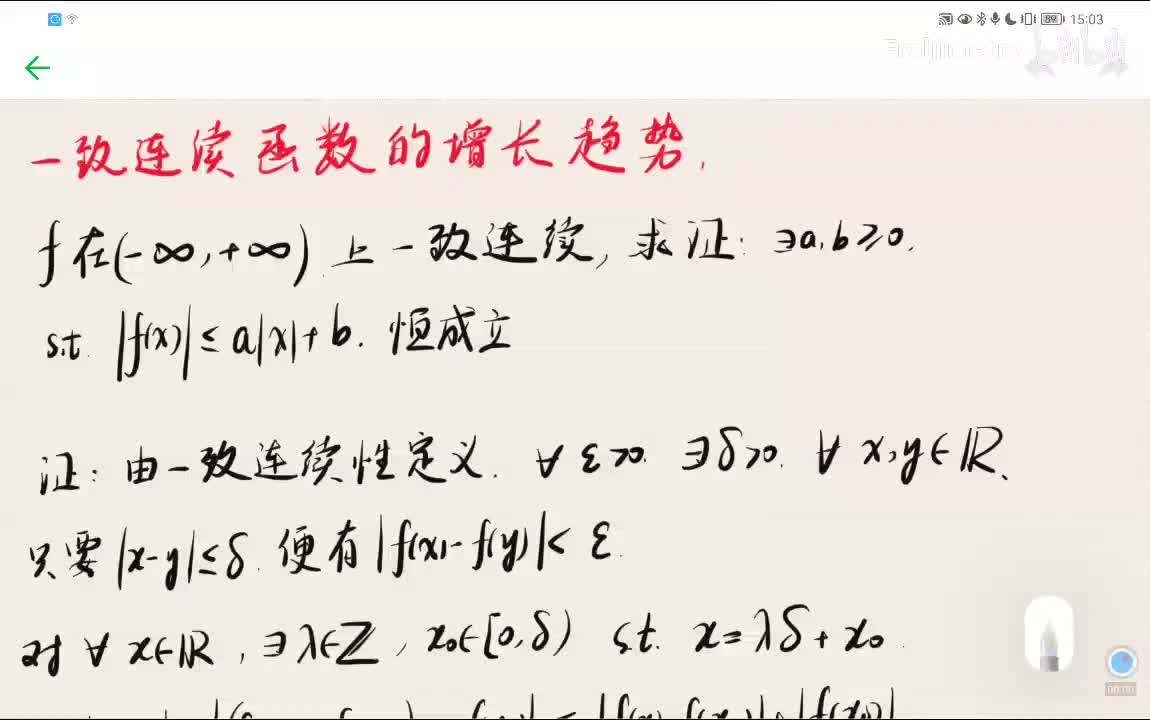 89 15:03
bilibili
一致连续函数的增长趋势.
f在(-∞,+∞)上一致连续,求证:∃a,b≥0.
s.t. |f(x)|≤a|x|+b.恒成立
证:由一致连续性定义. ∀ε>0. ∃δ>0. ∀x,y∈ℝ、
只要|x-y|≤δ.便有|f(x)-f(y)|<ε.
对∀x∈ℝ,∃λ∈ℤ,x₀∈[0,δ) s.t. x=λδ+x₀.
00:00